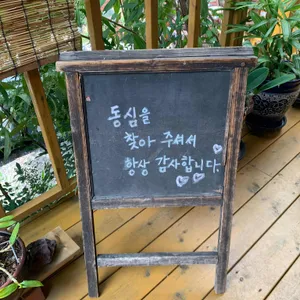 동심을
찾아 주셔서
항상 감사합니다.